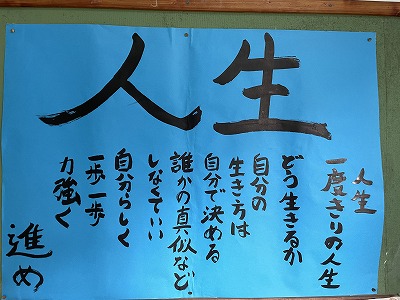 人生
人生
一度きりの人生
どう生きるか
自分の
生き方は
自分で決める
誰かの真似など
しなくていい
自分らしく
一歩一歩
力強く
進め